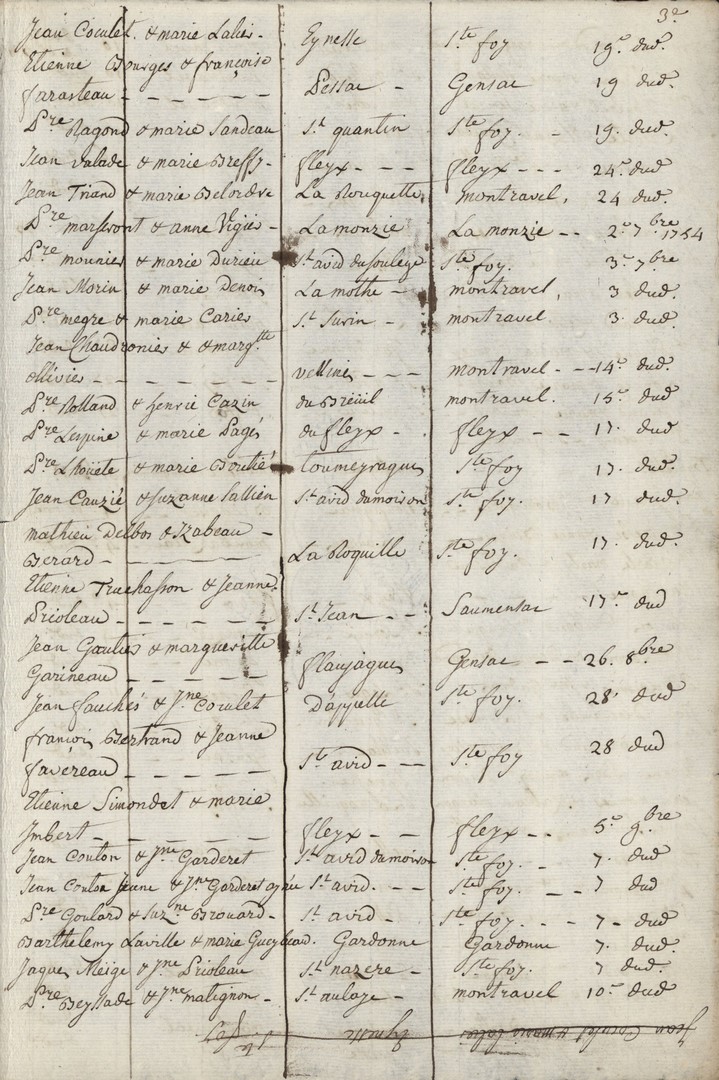 3e
Jean Coculet. & marie Laliés - Eynesse Ste foy 19e dud.
Etienne Bourges & françoise
farasteau - - - - - - Pessac - Gensac 19 dud.
Pre Ragond & marie Sandeau St quantin Ste foy. - 19. dud.
Jean Valade & marie Breffy - fleyx - - - fleyx - - - 24e dud.
Jean Triand & marie Belordre La Rouquette montravel, 24 dud.
Pre marseront & anne Vigiés - Lamonzie La monzie - - 2e 7bre 1754
Pre mounier & marie Durieu St avid du soulege Ste foy. 3e 7bre
Jean Morin & marie Denois La mothe - montravel, 3 dud.
Pre megre & marie Cariés St Surin - montravel 3. dud.
Jean Chaudroniés & & margtte
olliviés - - - - - - vellines - - - montravel - - 14e dud.
Pre Rolland & henrie Cazin du Breüil montravel. 15e dud.
Pre Lespine & marie Pagés du fleyx - . fleyx - - 17. dud
Pre Lhoüete & marie Boutié toumeyragues Ste foy 17. dud.
Jean Cauzié & suzanne Sallien St avid du moison Ste foy. 17 dud.
mathieu Delbos & Izabeau -
Berard - - - - - La Roquille Ste foy. 17. dud.
Etienne Truchasson & Jeanne
Prioleau - - - - - - St Jean - - - Saumensac 17e dud
Jean Gautiés & margueritte
Garineau - - - - - flaujagues Gensac - - 26. 8bre
Jean fauchés & Jne Coculet Dappelle Ste foy. 28e dud
françois Bertrand & Jeanne
favereau - - - - - St avid - - - Ste foy 28 dud
Etienne Simondet & marie
Imbert - - - - - - fleyx - - fleyx - - 5e 9bre
Jean Couton & Jne Garderet St avid du moison Ste foy - - 7. dud.
Jean Couton Jeune & Jne Garderet aynée St avid. - - Ste foy. - - 7 dud
Pre Goulard & suzne Brouard - St avid - Ste foy. - - 7 - dud
Barthelemy Laville & marie Gueybeaud. Gardonne Gardonne 7. dud.
Jaques Meige & Jne Prioleau St nazere - Ste foy. 7 dud.
Pre Beyllade & Jne malignon - St aulaye - montravel 10e dud
Jean Coculet & marie Laliés Eynesse